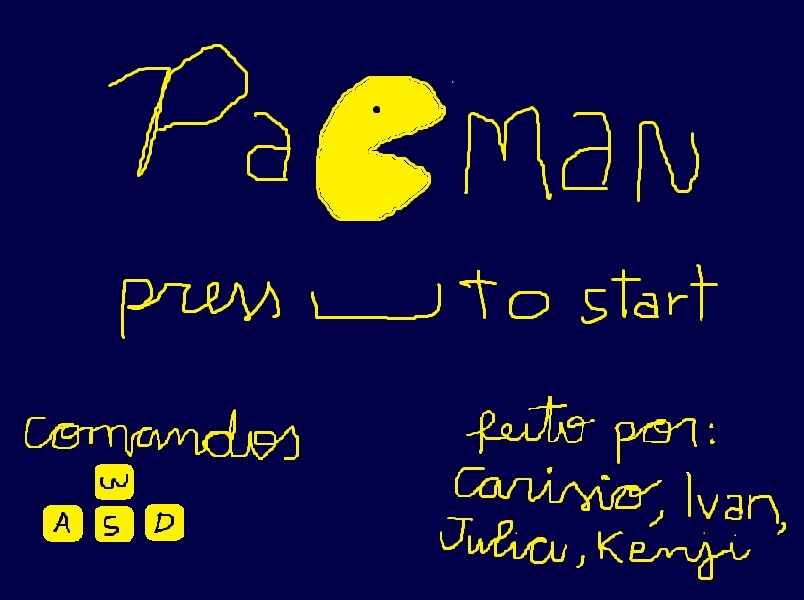 Pacman
press to start
comandos
W
A S D
feito por:
Carisio, Ivan,
Julia, Kenji